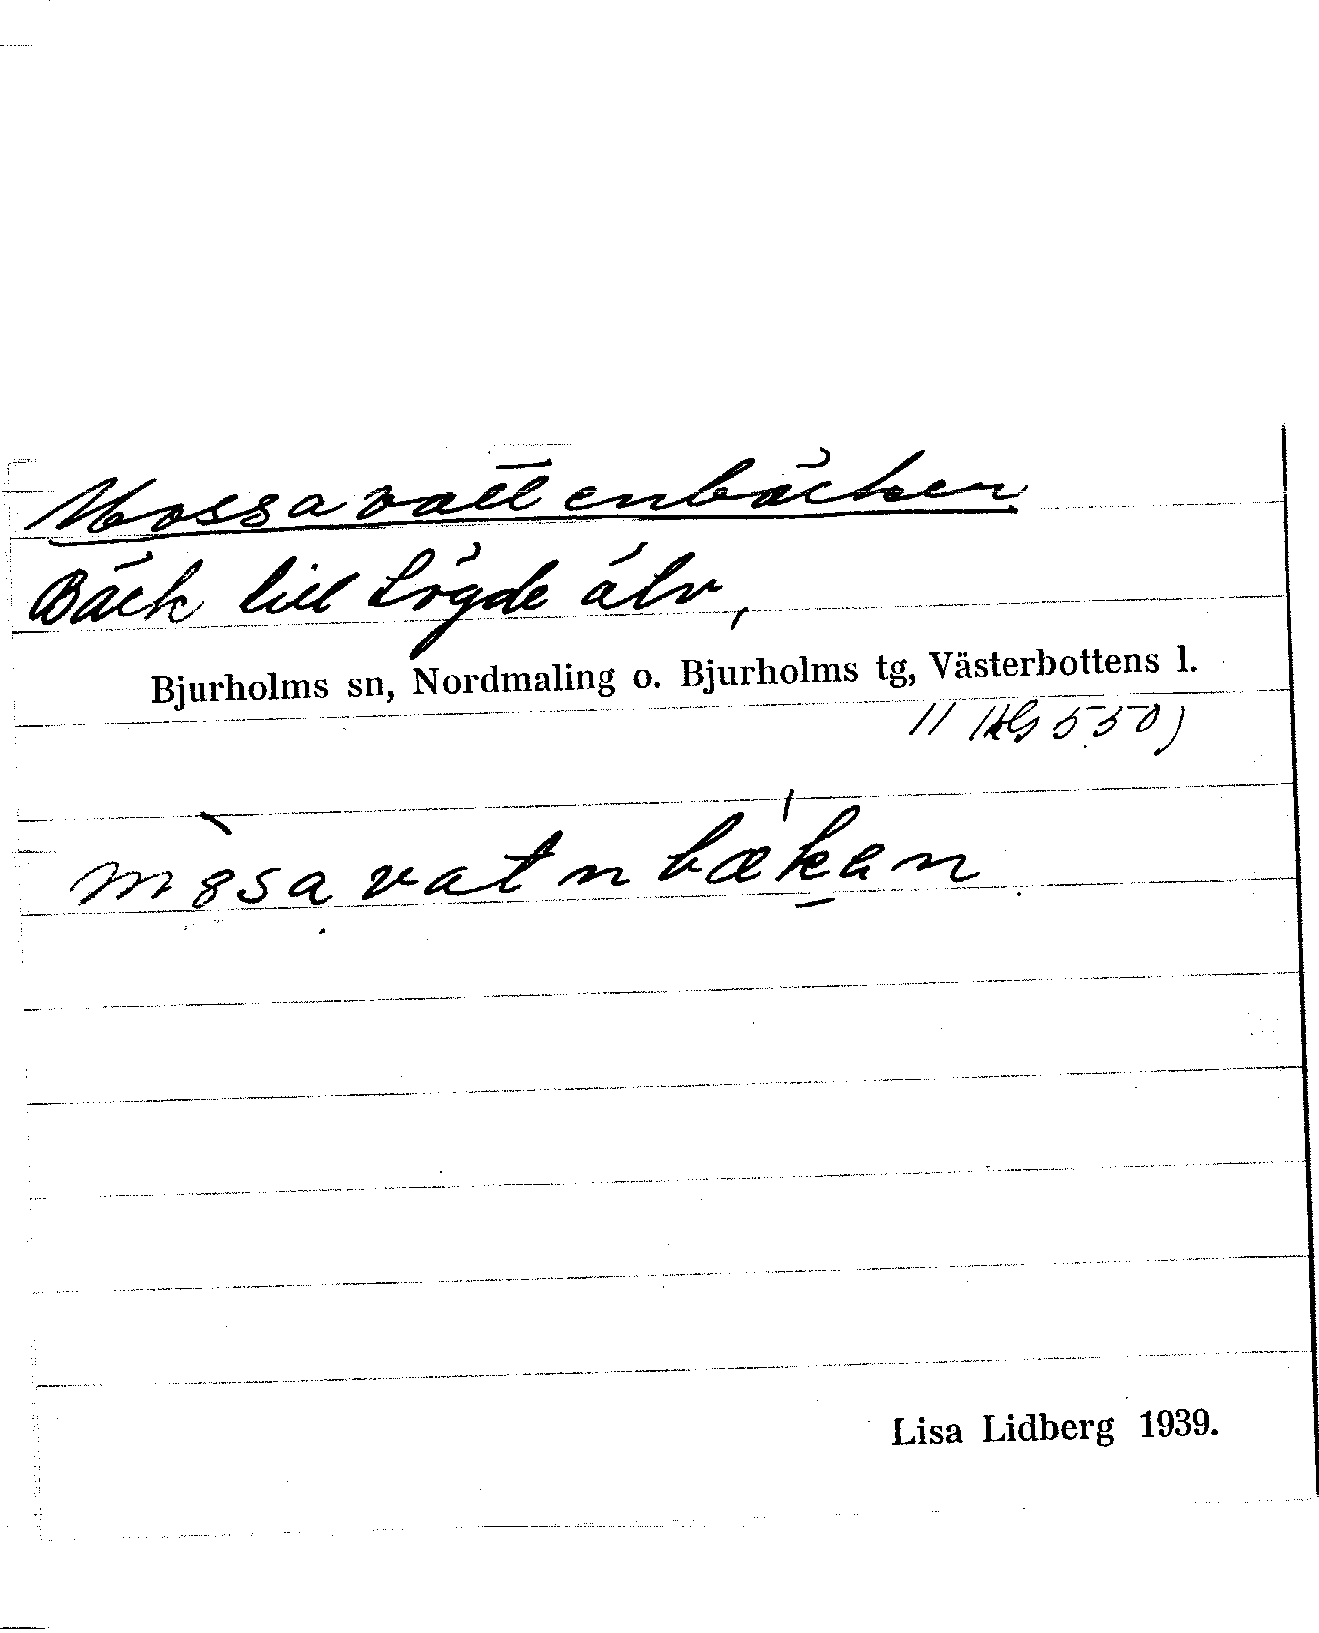 Mossavattenbäcken
Bäck till Lögde älv,
Bjurholms sn, Nordmaling o. Bjurholms tg, Västerbottens l.
550)
mòsa vatn bækan
Lisa Lidberg 1939.